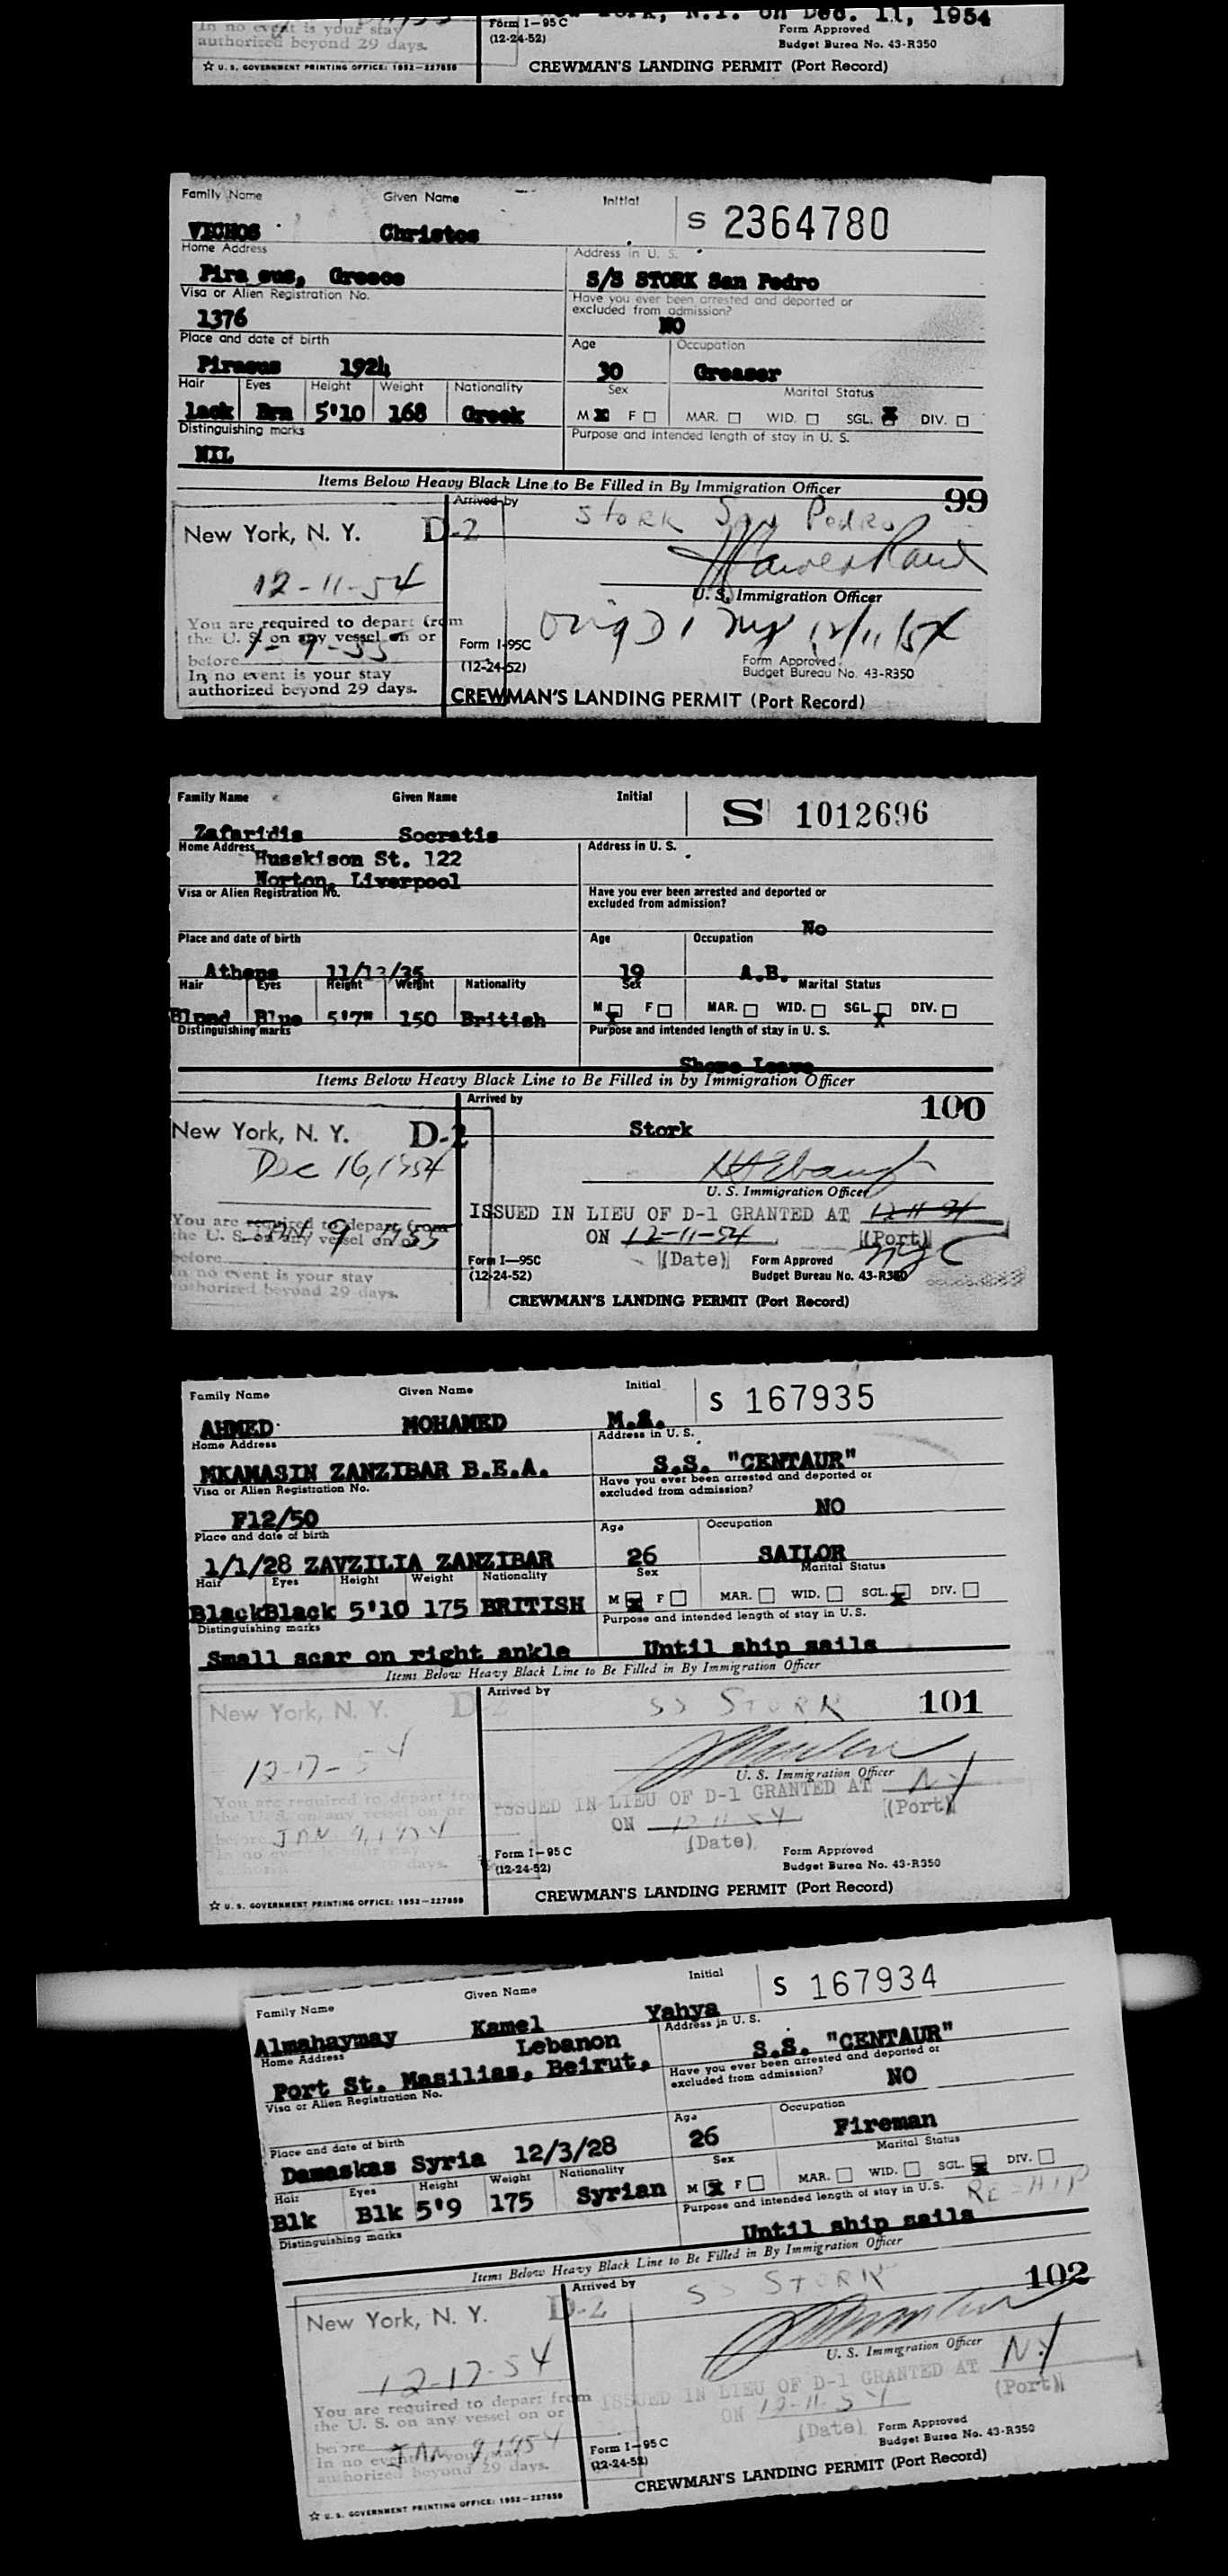 York, N.Y. on Dec. 11, 1954
In no event is your stay
authorized beyond 29 days.
Form I-95C
(12-24-52)
Form Approved
Budget Burea No. 43-R350
☆ U. S. GOVERNMENT PRINTING OFFICE: 1952-227850
CREWMAN'S LANDING PERMIT (Port Record)
Family Name Given Name Initial S 2364780
VICHOS Christos
Home Address Address in U. S.
Piraeus, Greece S/S STORK San Pedro
Visa or Alien Registration No. Have you ever been arrested and deported or
excluded from admission?
1376 NO
Place and date of birth Age Occupation
Piraeus 1924 30 Greaser
Hair Eyes Height Weight Nationality Sex Marital Status
lack Brn 5'10 168 Greek M X F MAR. WID. SGL. X DIV.
Distinguishing marks Purpose and intended length of stay in U. S.
NIL
Items Below Heavy Black Line to Be Filled in By Immigration Officer
Arrived by Stork San Pedro 99
New York, N. Y. D-2
12-11-54
U. S. Immigration Officer
You are required to depart from
the U. S. on any vessel on or
before 1-9-55
In no event is your stay
authorized beyond 29 days.
Orig D1 NY 12/11/54
Form I-95C
(12-24-52)
Form Approved
Budget Bureau No. 43-R350
CREWMAN'S LANDING PERMIT (Port Record)
Family Name Given Name Initial S 1012696
Zafaridis Socratis
Home Address Address in U. S.
Husskison St. 122
Norton, Liverpool
Visa or Alien Registration No. Have you ever been arrested and deported or
excluded from admission?
No
Place and date of birth Age Occupation
Athens 11/12/35 19 A.B.
Hair Eyes Height Weight Nationality Sex Marital Status
Blond Blue 5'7" 150 British M X F MAR. WID. SGL. X DIV.
Distinguishing marks Purpose and intended length of stay in U. S.
Shore Leave
Items Below Heavy Black Line to Be Filled in by Immigration Officer
Arrived by 100
New York, N. Y. D-2 Stork
Dec 16, 1954
U. S. Immigration Officer
ISSUED IN LIEU OF D-1 GRANTED AT 12-11-54
ON 12-11-54 (Port)
(Date) NYC
You are required to depart from
the U. S. on any vessel on or
before JAN 9 1955
In no event is your stay
authorized beyond 29 days.
Form I-95C
(12-24-52)
Form Approved
Budget Bureau No. 43-R350
CREWMAN'S LANDING PERMIT (Port Record)
Family Name Given Name Initial S 167935
AHMED MOHAMED M.S.
Home Address Address in U. S.
MKAMASIN ZANZIBAR B.E.A. S.S. "CENTAUR"
Visa or Alien Registration No. Have you ever been arrested and deported or
excluded from admission?
F12/50 NO
Place and date of birth Age Occupation
1/1/28 ZAVZILIA ZANZIBAR 26 SAILOR
Hair Eyes Height Weight Nationality Sex Marital Status
Black Black 5'10 175 BRITISH M X F MAR. WID. SGL. X DIV.
Distinguishing marks Purpose and intended length of stay in U. S.
Small scar on right ankle Until ship sails
Items Below Heavy Black Line to Be Filled in By Immigration Officer
Arrived by SS STORK 101
New York, N. Y. D-2
12-17-54
U. S. Immigration Officer
ISSUED IN LIEU OF D-1 GRANTED AT NY
ON 12 11 54 (Port)
(Date)
You are required to depart from
the U. S. on any vessel on or
before JAN 9, 1954
In no event is your stay
authorized beyond 29 days.
Form I-95C
(12-24-52)
Form Approved
Budget Burea No. 43-R350
☆ U. S. GOVERNMENT PRINTING OFFICE: 1952-227850
CREWMAN'S LANDING PERMIT (Port Record)
Family Name Given Name Initial S 167934
Almahaymay Kamel Yahya
Home Address Address in U. S.
Lebanon
Port St. Masilias, Beirut. S.S. "CENTAUR"
Visa or Alien Registration No. Have you ever been arrested and deported or
excluded from admission?
NO
Place and date of birth Age Occupation
Damaskas Syria 12/3/28 26 Fireman
Hair Eyes Height Weight Nationality Sex Marital Status
Blk Blk 5'9 175 Syrian M X F MAR. WID. SGL. X DIV.
Distinguishing marks Purpose and intended length of stay in U.S. RESHIP
Until ship sails
Items Below Heavy Black Line to Be Filled in By Immigration Officer
Arrived by SS STORK 102
New York, N. Y. D-2
12-17-54
U. S. Immigration Officer
ISSUED IN LIEU OF D-1 GRANTED AT N.Y
ON 12-11-54 (Port)
(Date)
You are required to depart from
the U. S. on any vessel on or
before JAN 9 1954
In no event is your stay
authorized beyond 29 days.
Form I-95C
(12-24-52)
Form Approved
Budget Burea No. 43-R350
☆ U. S. GOVERNMENT PRINTING OFFICE: 1952-227850
CREWMAN'S LANDING PERMIT (Port Record)